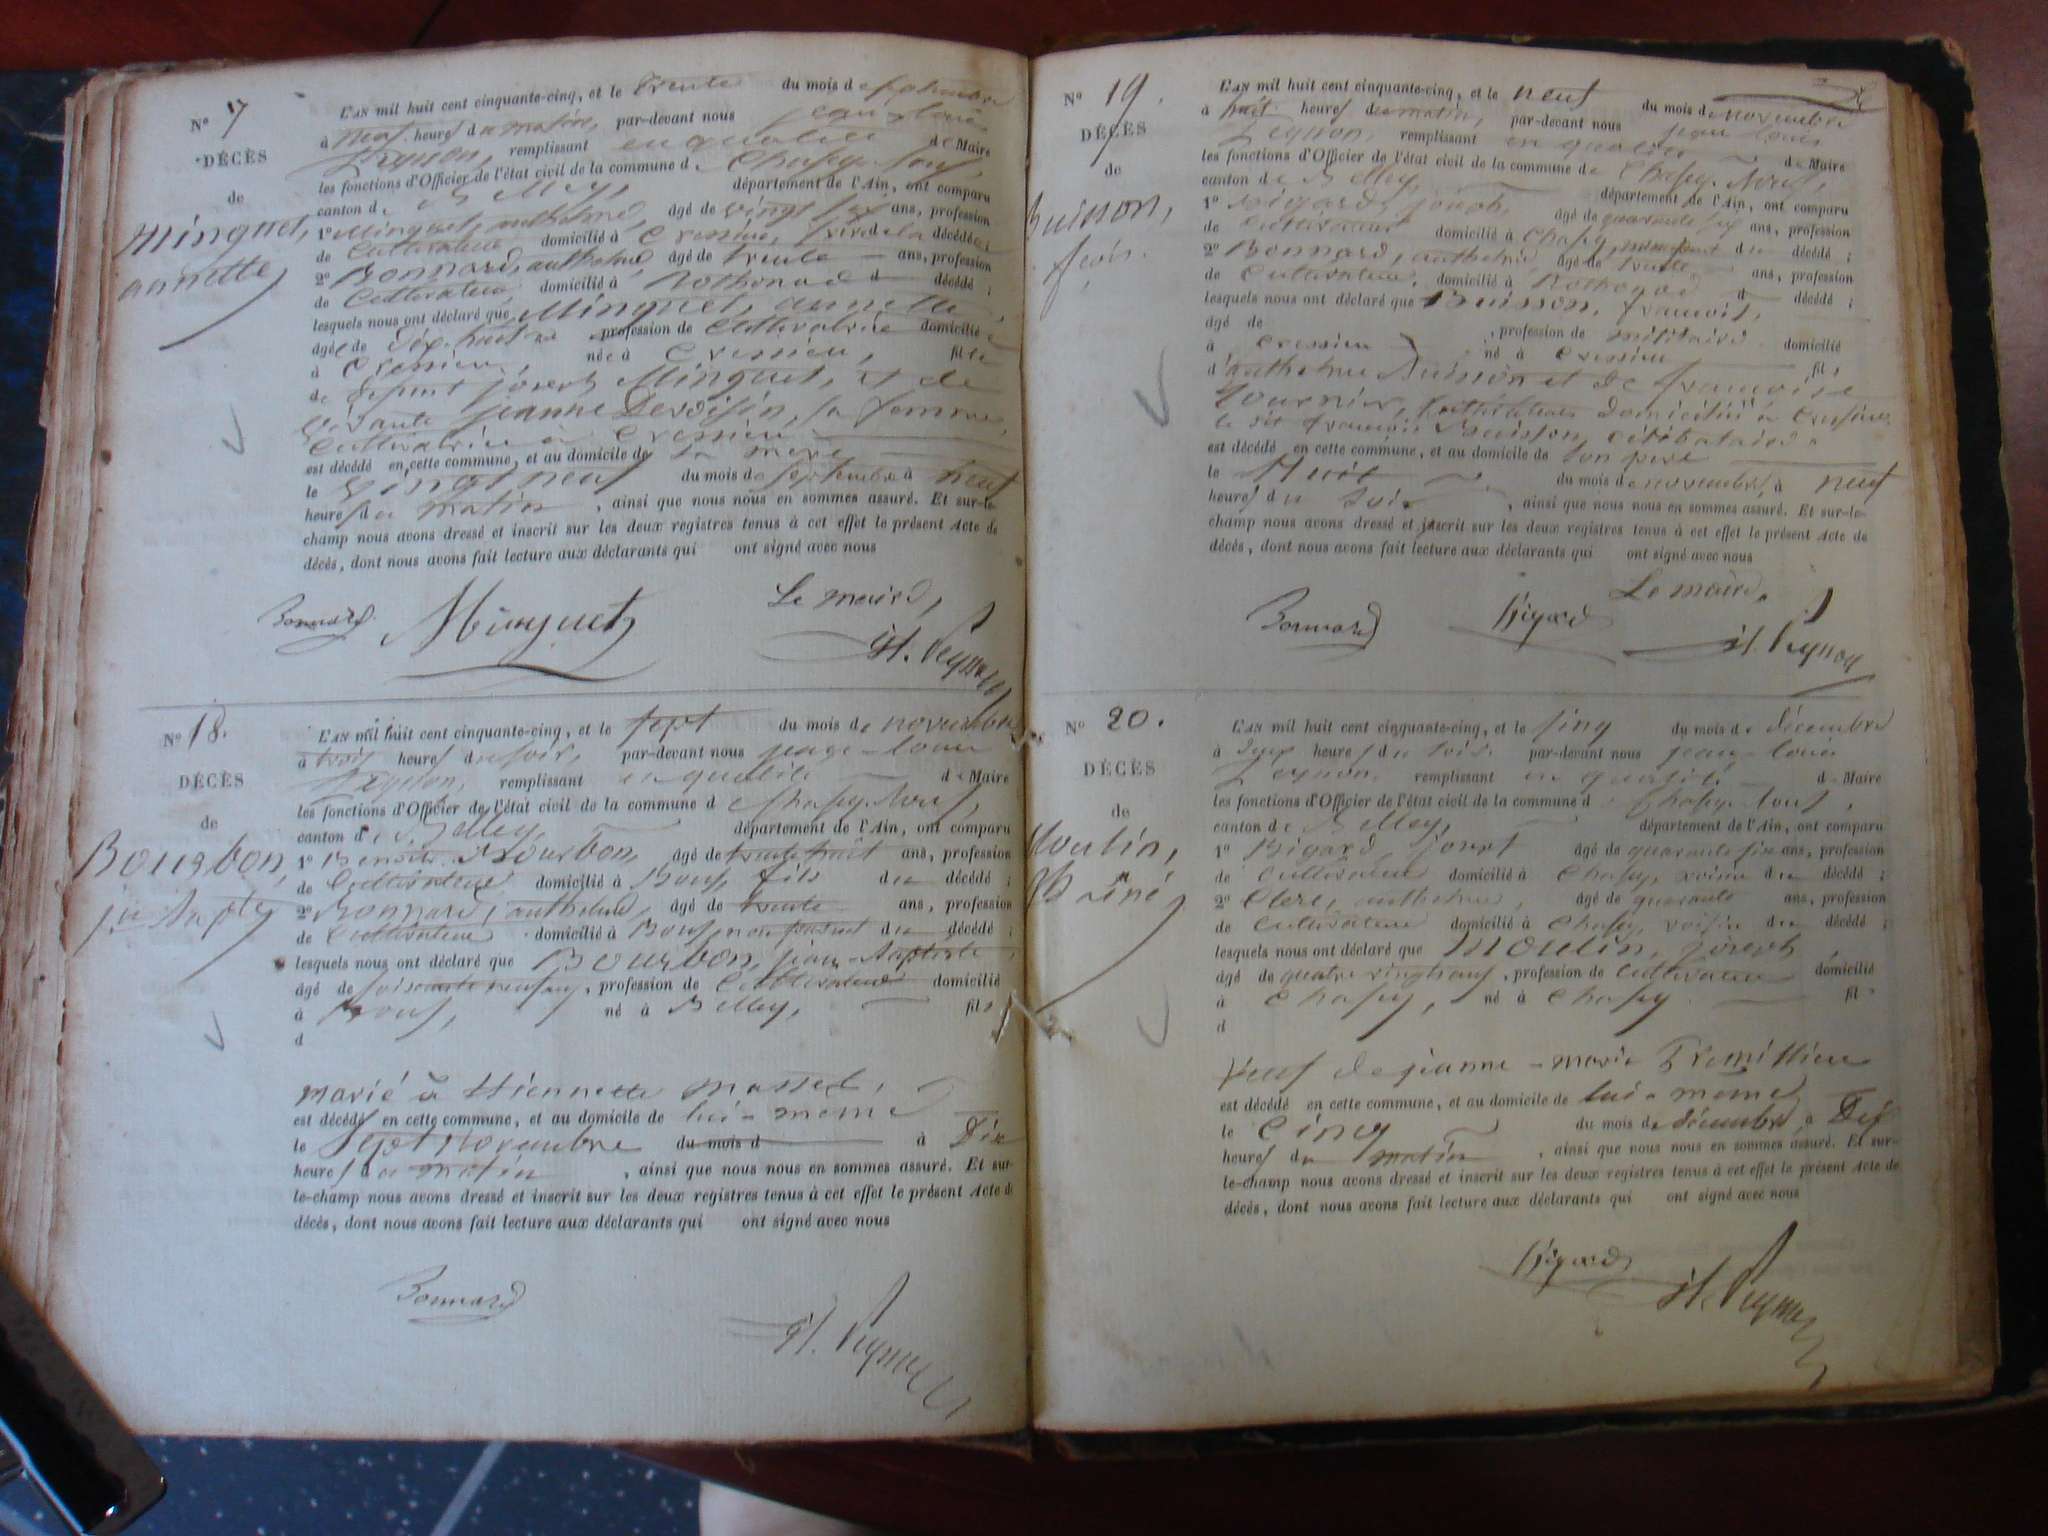 N° 17
DÉCÈS
de
Minguet,
annette
L'AN mil huit cent cinquante-cinq, et le trente du mois de septembre
à neuf heures du matin, par-devant nous jean-louis
Peysson, remplissant en qualité de Maire
les fonctions d'Officier de l'état civil de la commune de Chazey-Bons,
canton de Belley, département de l'Ain, ont comparu
1° Minguet, anthelme, âgé de vingt six ans, profession
de Cultivateur domicilié à Cressieu, frère de la décédée;
2° Bonnard, anthelme, âgé de trente ans, profession
de Cultivateur, domicilié à Rothonod d décédé;
lesquels nous ont déclaré que Minguet, annette,
âgée de dix-huit ans profession de Cultivatrice domicilié
à Cressieu, née à Cressieu, fille
de défunt joseph Minguet, et de
vivante jeanne Devoisin, sa femme,
Cultivatrice à Cressieu
est décédé en cette commune, et au domicile de sa mère
le vingt neuf du mois de septembre à neuf
heures du matin, ainsi que nous nous en sommes assuré. Et sur-le-
champ nous avons dressé et inscrit sur les deux registres tenus à cet effet le présent Acte de
décès, dont nous avons fait lecture aux déclarants qui ont signé avec nous
Le maire,
Bonnard Minguet
N° 18.
DÉCÈS
de
Bourbon,
L'AN mil huit cent cinquante-cinq, et le sept du mois de novembre
à trois heures du soir, par-devant nous jean-louis
Peysson, remplissant en qualité de Maire
les fonctions d'Officier de l'état civil de la commune d Chazey-Bons,
canton de Belley, département de l'Ain, ont comparu
1° Benoît Bourbon, âgé de trente huit ans, profession
de Cultivateur domicilié à Bons, fils du décédé;
2° Bonnard, anthelme, âgé de trente ans, profession
de Cultivateur domicilié à Bons, non parent du décédé;
lesquels nous ont déclaré que Bourbon, jean-Baptiste,
âgé de soixante neuf ans, profession de Cultivateur domicilié
à Bons, né à Belley, fils
d
marié à Etiennette Masset,
est décédé en cette commune, et au domicile de lui-meme
le Sept Novembre du mois d à Dix
heures du matin, ainsi que nous nous en sommes assuré. Et sur-
le-champ nous avons dressé et inscrit sur les deux registres tenus à cet effet le présent Acte de
décès, dont nous avons fait lecture aux déclarants qui ont signé avec nous
Bonnard
N° 19.
DÉCÈS
de
Buisson,
L'AN mil huit cent cinquante-cinq, et le neuf du mois de novembre
à huit heures du matin, par-devant nous jean louis
Peysson, remplissant en qualité de Maire
les fonctions d'Officier de l'état civil de la commune de Chazey-Bons,
canton de Belley, département de l'Ain, ont comparu
1° Bigard, joseph, âgé de quarante six ans, profession
de Cultivateur domicilié à Chazey, non parent du décédé;
2° Bonnard, anthelme, âgé de trente ans, profession
de Cultivateur, domicilié à Rothonod d décédé;
lesquels nous ont déclaré que Buisson, françois,
âgé de, profession de militaire domicilié
à Cressieu, né à Cressieu fils
d'anthelme Buisson et de françoise
fournier, Cultivateurs domiciliés à Cressieu,
le dit françois Buisson, célibataire
est décédé en cette commune, et au domicile de son père
le Huit du mois de novembre, à neuf
heures du soir, ainsi que nous nous en sommes assuré. Et sur-le-
champ nous avons dressé et inscrit sur les deux registres tenus à cet effet le présent Acte de
décès, dont nous avons fait lecture aux déclarants qui ont signé avec nous
Le maire.
Bonnard Bigard
N° 20.
DÉCÈS
de
Moulin,
L'AN mil huit cent cinquante-cinq, et le cinq du mois de décembre
à deux heures du soir. par-devant nous jean-louis
Peysson, remplissant en qualité de Maire
les fonctions d'Officier de l'état civil de la commune d Chazey-Bons,
canton de Belley, département de l'Ain, ont comparu
1° Bigard joseph âgé de quarante six ans, profession
de Cultivateur domicilié à Chazey, voisin du décédé;
2° Clerc, anthelme, âgé de quarante ans, profession
de Cultivateur domicilié à Chazey, voisin du décédé;
lesquels nous ont déclaré que Moulin, joseph,
âgé de quatre vingt neuf, profession de Cultivateur domicilié
à Chazey, né à Chazey fils
d
Veuf de jeanne-marie
est décédé en cette commune, et au domicile de lui-meme
le Cinq du mois de décembre, à Dix
heures du matin, ainsi que nous nous en sommes assuré. Et sur-
le-champ nous avons dressé et inscrit sur les deux registres tenus à cet effet le présent Acte de
décès, dont nous avons fait lecture aux déclarants qui ont signé avec nous
Bigard